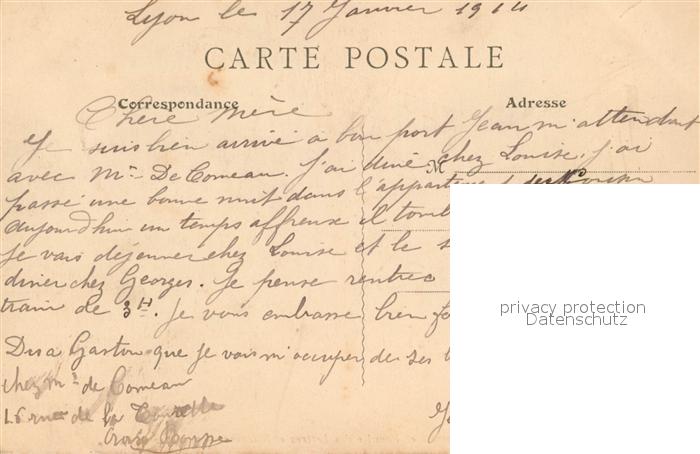 Lyon le 17 Janvier 1914
CARTE POSTALE
Correspondance
Adresse
Chere Mère
Je suis bien arrivé a bon port Jean m'attendait
avec Mr De Comeau. J'ai diné chez Louise. J'ai
M
passé une bonne nuit dans l'appartement des
aujourdhui un temps affreux il tomb
Je vais déjeuner chez Louise et le s
diner chez Georges. Je pense rentrer
train de 3H. Je vous embrasse bien fo
Dis a Gaston que je vais m'occuper de ses
chez Mr de Comeau
16 rue de la Tourelle
Croix Rousse
privacy protection
Datenschutz